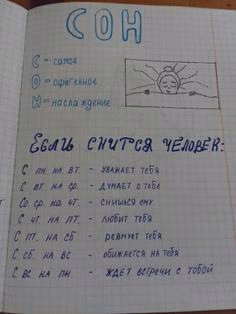 СОН
С - самое
О - офигенное
Н - наслаждение
ЕСЛИ СНИТСЯ ЧЕЛОВЕК:
С ПН НА ВТ. - УВАЖАЕТ ТЕБЯ
С ВТ НА СР. - ДУМАЕТ О ТЕБЕ
СО СР. НА ЧТ - СНИШЬСЯ ЕМУ
С ЧТ НА ПТ. - ЛЮБИТ ТЕБЯ
С ПТ. НА СБ - РЕВНУЕТ ТЕБЯ
С СБ. НА ВС - ОБИЖАЕТСЯ НА ТЕБЯ
С ВС НА ПН. - ЖДЁТ ВСТРЕЧИ С ТОБОЙ